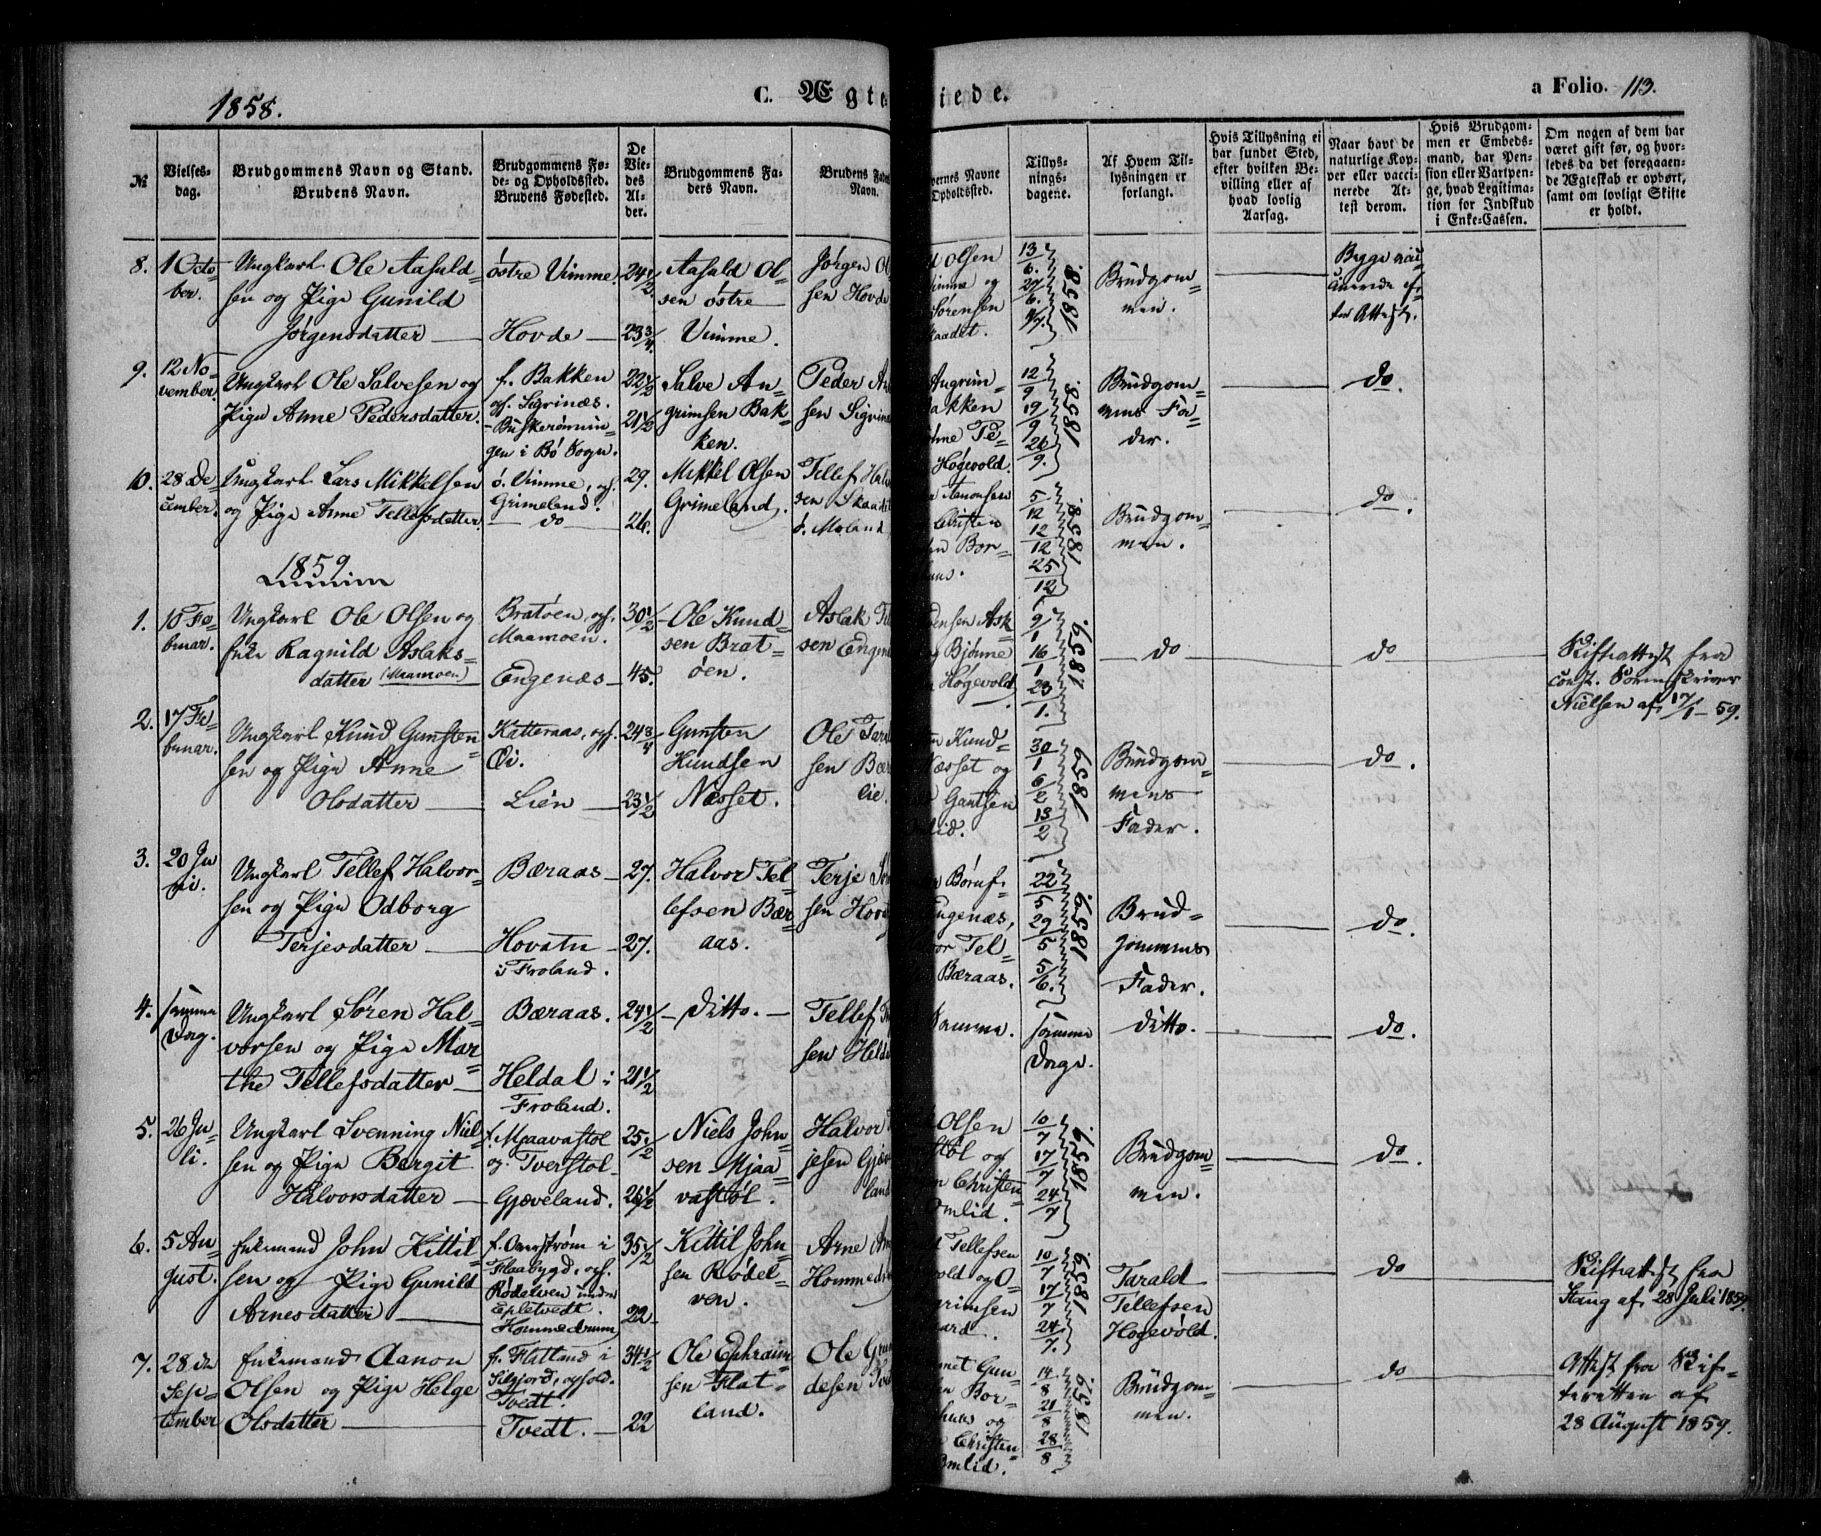 1858.
C. Ægte
iede.
a Folio. 113.
№
Vielses-
dag.
Brudgommens Navn og Stand.
Brudens Navn.
Brudgommens Fø-
de- og Opholdssted.
Brudens Fødested.
De
Vie-
des
Al-
der.
Brudgommens Fa-
ders Navn.
Brudens Fade
Navn.
vernes Navne
Opholdssted.
Tillys-
nings-
dagene.
Af Hvem Til-
lysningen er
forlangt.
Hvis Tillysning ei
har fundet Sted,
efter hvilken Be-
villing eller af
hvad lovlig
Aarsag.
Naar havt de
naturlige Kop-
per eller vacci-
nerede At-
test derom.
Hvis Brudgom-
men er Embeds-
mand, har Pen-
sion eller Vartpen-
ge, hvad Legitima-
tion for Indskud
i Enke-Cassen.
Om nogen af dem har
været gift før, og hvor-
ledes da det foregaaen-
de Ægteskab er ophørt,
samt om lovligt Skifte
er holdt.
8. 1 Octo-
ber.
Ungkarl Ole Aasuld
sen og Pige Gunild
Jørgensdatter
østre Vimme.
Hovde
24 1/2
23 3/4.
Aasuld Ol-
sen østre
Vimme.
Jørgen Ol
sen Hovde
d Olsen
imme og
Sørensen
kaadet.
13/6.
27/6.
4/7.
1858.
Brudgom-
men.
Begge vac-
cinerede ef-
ter Attest.
9. 12 No-
vember.
Ungkarl Ole Salvesen og
Pige Anne Pedersdatter.
f. Bakken
og. Sigrinæs.
gen i Bø Sogn.
22 1/2
21 1/2
Salve An-
grimsen Bak-
ken.
Peder A
sen Sigrinæ
Angrim-
akken
Høgevold.
12/9
19/9
26/9.
1858.
Brudgom-
mens Fa-
der.
do.
10. 28 De-
cember.
Ungkarl Lars Mikkelsen
og Pige Anne Tellefsdatter.
ø. Vimme, oph.
Grimeland.
do
29.
26.
Mikkel Olsen
Grimeland.
Tellef Hal
sen Skaadet
ø. Moland
Aanonsen
Christen
en Bor-
5/12
12/12
25/12
1858.
Brudgom-
men.
do.
1859
1. 10 Fe-
bruar.
Ungkarl Ole Olsen og
Enke Ragnild Aslaks-
datter (Maamoen)
Bratøen, oph.
Maamoen.
Engenæs
30 1/2
45.
Ole Knud-
sen Brat-
øen.
Aslak
sen Engen
ensen Ask
g Bjønne
Høgevold
9/1
16/1
23/1.
1859.
do
do
Skifteattest fra
const. Sorenskriver
Nielsen af 17/1-59.
2. 17 Fe-
bruar.
Ungkarl Knud Gunsten-
sen og Pige Anne
Olsdatter
Katteraas, oph.
Øi.
Lien
24 3/4
23 1/2
Gunsten
Knudsen
Næsset.
Ole Tar
sen Bær
lie.
n Knud-
Næsset og
Guntsen
lid.
30/1
6/2
13/2
1859
Brudgom-
mens
Fader.
do.
3. 20 Ju
ni.
Ungkarl Tellef Halvor-
sen og Pige Odborg
Terjesdatter
Bæraas
Hovatn
i Froland.
27.
27.
Halvor Tel-
lefsen Bær-
aas.
Terje
sen Hov
Børuf-
Engenæs,
vor Tel-
Bæraas.
22/5
29/5
5/6.
1859.
Brud-
gommens
Fader.
do.
4. samme
Dag.
Ungkarl Søren Hal-
vorsen og Pige Mar-
the Tellefsdatter
Bæraas.
Heldal i
Froland.
24 1/2
21 1/2
Ditto.
Tellef
sen Held
Samme.
samme
Dage.
ditto.
do.
5. 26 Ju-
li.
Ungkarl Svenning Niel-
sen og Pige Bergit
Halvorsdatter
f. Mjaavastøl
og. Tverstøl
Gjæveland.
25 1/2
26 1/2
Niels John-
sen Mjaa
vastøl.
Halvor
jesen Gjæv
land
Olsen
støl og
n Christen-
Omlid.
10/7
17/7
24/7
1859.
Brudgom-
men.
do.
6. 5 Au-
gust.
Enkemand John Kittil
sen og Pige Gunild
Arnesdatter
f. Overstrøm i
Flaabygd, oph.
Rødelven under
Epletvedt.
Hommedrum
35 1/2
22
Kittil John-
sen Rødel-
ven.
Arne
Hommedrum
Tellefsen
vold og O
grimsen
aard.
10/7
17/7
24/7.
1859
Tarald
Tellefsen
Høgevold.
do
Skifteattest fra
Stang af 28 Juli 1859.
7. 28 de
Sep-
tember
Enkemand Aanon
Olsen og Pige Helge
Olsdatter
f. Flatland i
Siljord, ophold.
Tvedt.
Tvedt.
34 1/2
22
Ole Ephraim-
sen Flat-
land.
Ole Gun
desen Tve
met Gun-
en Bor-
huus og
Christen-
Omlid.
14/8
21/8
28/8
1859
Brudgom-
men.
do
Attest fra Skif-
teretten af
28 August 1859.